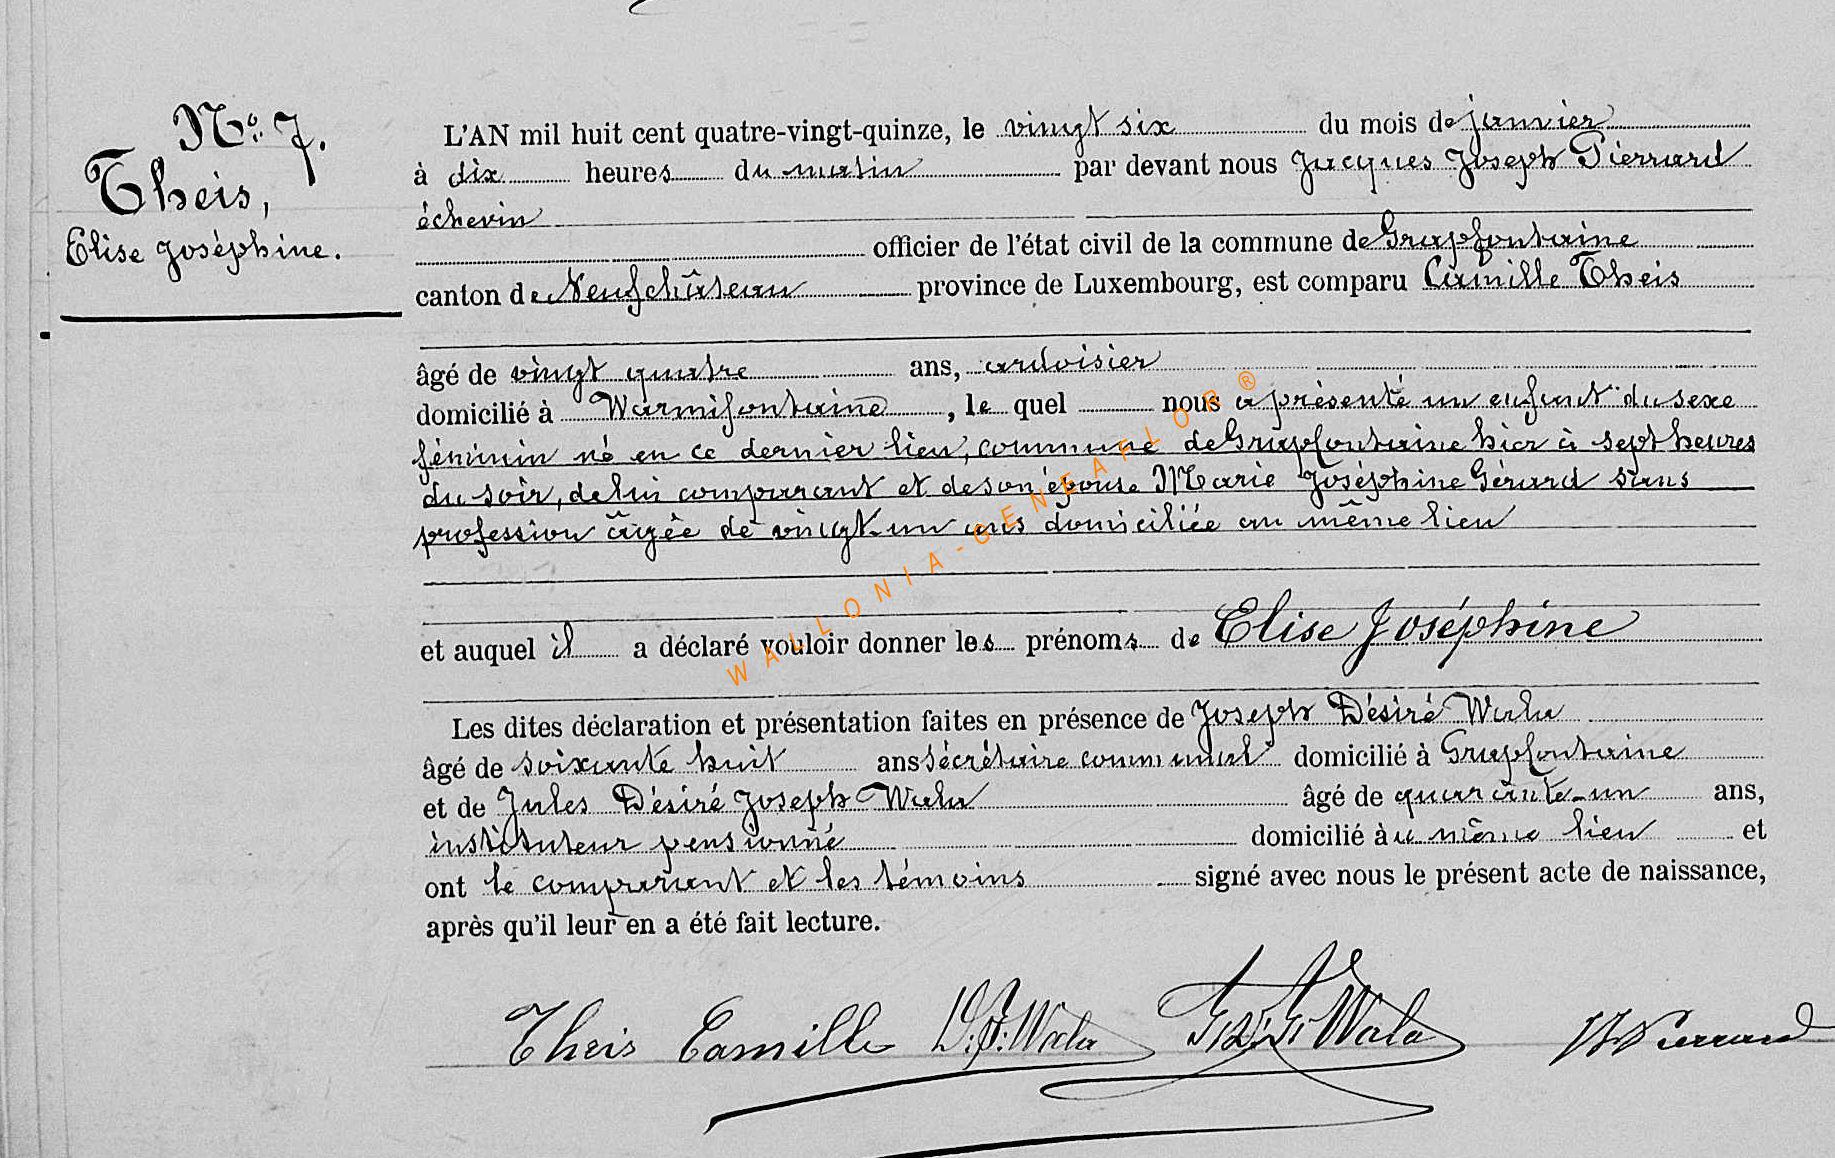 Nº. 7.
Theis,
Elise Joséphine.
L'AN mil huit cent quatre-vingt-quinze, le vingt six du mois de janvier
à dix heures du matin par devant nous Jacques Joseph Pierrard
échevin
officier de l'état civil de la commune de Grapfontaine
canton de Neufchâteau province de Luxembourg, est comparu Camille Theis
âgé de vingt quatre ans, ardoisier
domicilié à Warmifontaine, le quel nous a présenté un enfant du sexe
féminin né en ce dernier lieu, commune de Grapfontaine hier à sept heures
du soir, de lui comparant et de son épouse Marie Joséphine Gérard sans
profession âgée de vingt-un ans domiciliée au même lieu
et auquel il a déclaré vouloir donner les prénoms de Elise Joséphine
Les dites déclaration et présentation faites en présence de Joseph Désiré Wala
âgé de soixante huit ans sécrétaire communal domicilié à Grapfontaine
et de Jules Désiré Joseph Wala âgé de quarante-un ans,
instituteur pensionné domicilié au même lieu et
ont le comparant et les témoins signé avec nous le présent acte de naissance,
après qu'il leur en a été fait lecture.
Theis Camille D. J. Wala Wala Pierrard
WALLONIA-GENEAFLOR®